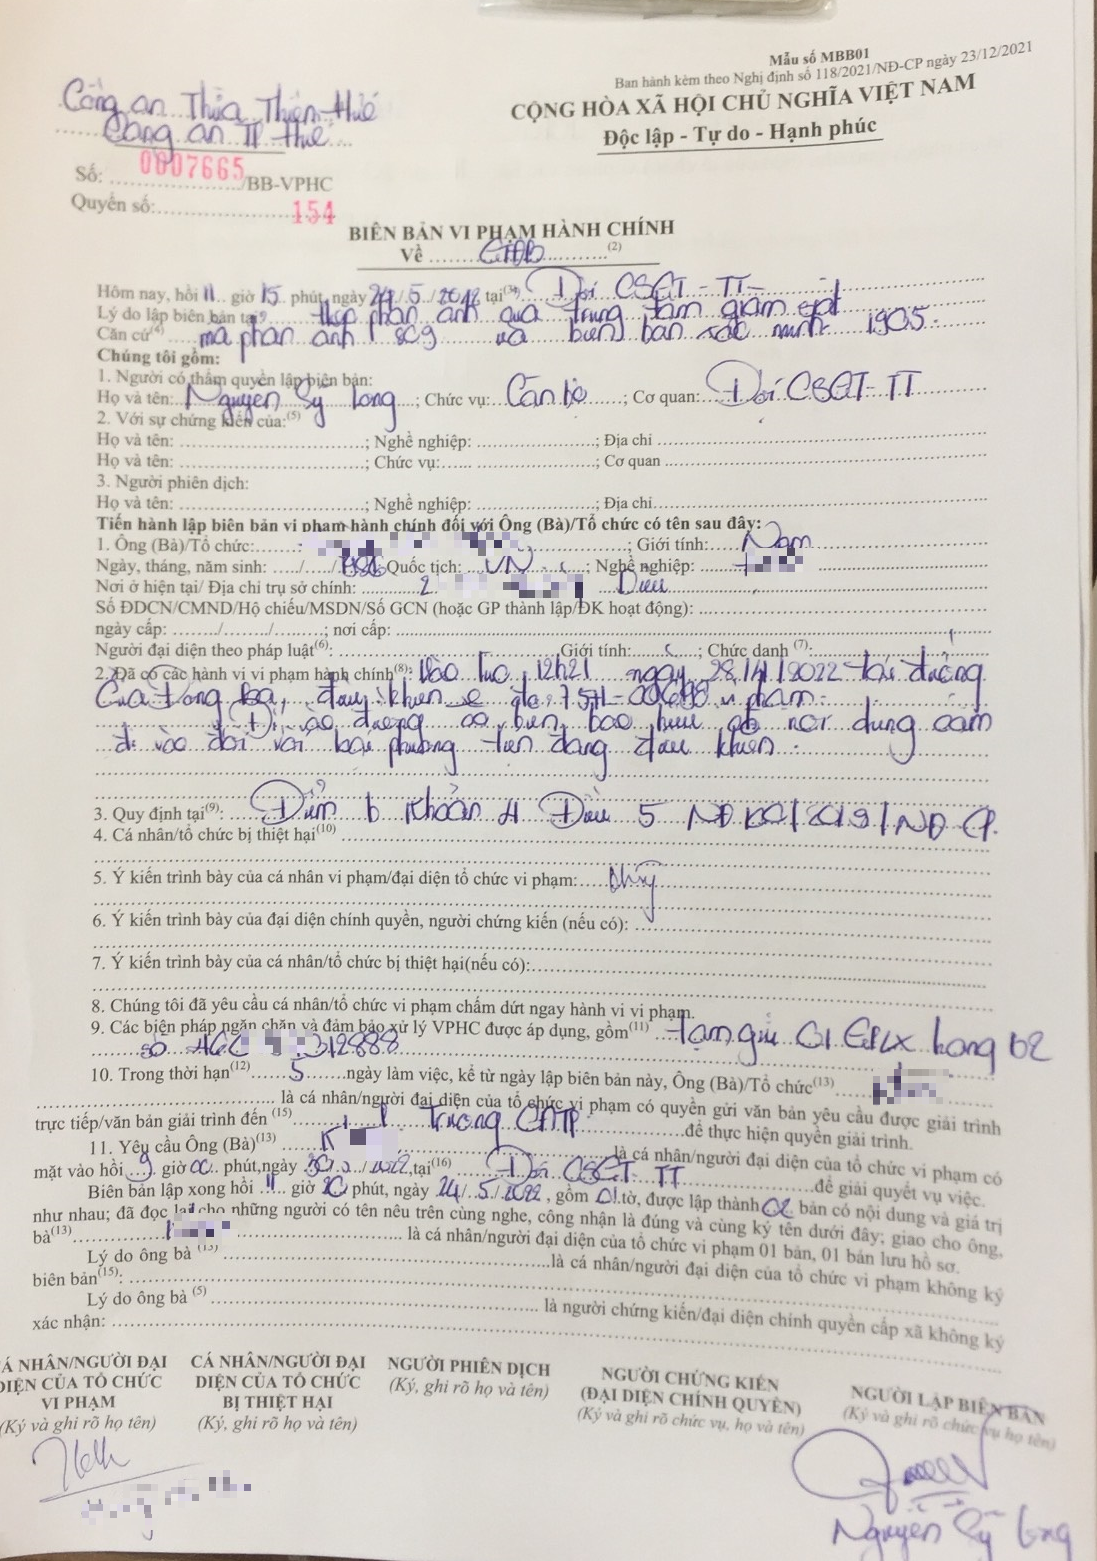 Mẫu số MBB01
Ban hành kèm theo Nghị định số 118/2021/NĐ-CP ngày 23/12/2021
Công an Thừa Thiên Huế
CỘNG HÒA XÃ HỘI CHỦ NGHĨA VIỆT NAM
Công an TP Huế
Độc lập - Tự do - Hạnh phúc
Số: 0007665/BB-VPHC
Quyển số: 154
BIÊN BẢN VI PHẠM HÀNH CHÍNH
Về GTĐB (2)
Hôm nay, hồi 11 giờ 15 phút, ngày 24/5/2022 tại Đội CSGT-TT
Lý do lập biên bản tại phản ánh qua Trung tâm giám
Căn cứ mã phản ánh và biên bản xác minh 1905
Chúng tôi gồm:
1. Người có thẩm quyền lập biên bản:
Họ và tên: Nguyễn Sỹ Long; Chức vụ: Cán bộ; Cơ quan: Đội CSGT-TT
2. Với sự chứng kiến của:(5)
Họ và tên: ; Nghề nghiệp: ; Địa chỉ
Họ và tên: ; Chức vụ: ; Cơ quan
3. Người phiên dịch:
Họ và tên: ; Nghề nghiệp: ; Địa chỉ
Tiến hành lập biên bản vi phạm hành chính đối với Ông (Bà)/Tổ chức có tên sau đây:
1. Ông (Bà)/Tổ chức: ; Giới tính: Nam
Ngày, tháng, năm sinh: ..../..../ Quốc tịch: VN; Nghề nghiệp:
Nơi ở hiện tại/ Địa chỉ trụ sở chính: 2
Số ĐDCN/CMND/Hộ chiếu/MSDN/Số GCN (hoặc GP thành lập/ĐK hoạt động):
ngày cấp: ......./......./.......; nơi cấp:
Người đại diện theo pháp luật(6): Giới tính: ; Chức danh (7):
2. Đã có các hành vi vi phạm hành chính(8): Vào lúc 12h21 ngày 28/4/2022 tại đường
Cửa Đông Ba, điều khiển xe ôtô 75A-00688 vi phạm:
Đi vào đường có biển báo hiệu có nội dung cấm
đi vào đối với loại phương tiện đang điều khiển.
3. Quy định tại(9): Điểm b Khoản 4 Điều 5 NĐ 100/2019/NĐ-CP.
4. Cá nhân/tổ chức bị thiệt hại(10)
5. Ý kiến trình bày của cá nhân vi phạm/đại diện tổ chức vi phạm:
6. Ý kiến trình bày của đại diện chính quyền, người chứng kiến (nếu có):
7. Ý kiến trình bày của cá nhân/tổ chức bị thiệt hại(nếu có):
8. Chúng tôi đã yêu cầu cá nhân/tổ chức vi phạm chấm dứt ngay hành vi vi phạm.
9. Các biện pháp ngăn chặn và đảm bảo xử lý VPHC được áp dụng, gồm(11) Tạm giữ 01 GPLX hạng B2
số 12888
10. Trong thời hạn(12) 5 ngày làm việc, kể từ ngày lập biên bản này, Ông (Bà)/Tổ chức(13)
là cá nhân/người đại diện của tổ chức vi phạm có quyền gửi văn bản yêu cầu được giải trình
trực tiếp/văn bản giải trình đến (15) Trưởng CATP để thực hiện quyền giải trình.
11. Yêu cầu Ông (Bà)(13) là cá nhân/người đại diện của tổ chức vi phạm có
mặt vào hồi 9 giờ 00 phút, ngày 30/ /2022, tại(16) Đội CSGT-TT để giải quyết vụ việc.
Biên bản lập xong hồi 11 giờ 20 phút, ngày 24/5/2022, gồm 01 tờ, được lập thành 02 bản có nội dung và giá trị
như nhau; đã đọc lại cho những người có tên nêu trên cùng nghe, công nhận là đúng và cùng ký tên dưới đây; giao cho ông,
bà(13) là cá nhân/người đại diện của tổ chức vi phạm 01 bản, 01 bản lưu hồ sơ.
Lý do ông bà (13) là cá nhân/người đại diện của tổ chức vi phạm không ký
biên bản(15):
Lý do ông bà (5) là người chứng kiến/đại diện chính quyền cấp xã không ký
xác nhận:
Á NHÂN/NGƯỜI ĐẠI DIỆN CỦA TỔ CHỨC VI PHẠM
(Ký và ghi rõ họ tên)
CÁ NHÂN/NGƯỜI ĐẠI DIỆN CỦA TỔ CHỨC BỊ THIỆT HẠI
(Ký, ghi rõ họ và tên)
NGƯỜI PHIÊN DỊCH
(Ký, ghi rõ họ và tên)
NGƯỜI CHỨNG KIẾN
(ĐẠI DIỆN CHÍNH QUYỀN)
(Ký và ghi rõ chức vụ, họ và tên)
NGƯỜI LẬP BIÊN BẢN
(Ký và ghi rõ chức vụ họ tên)
Nguyễn Sỹ Long